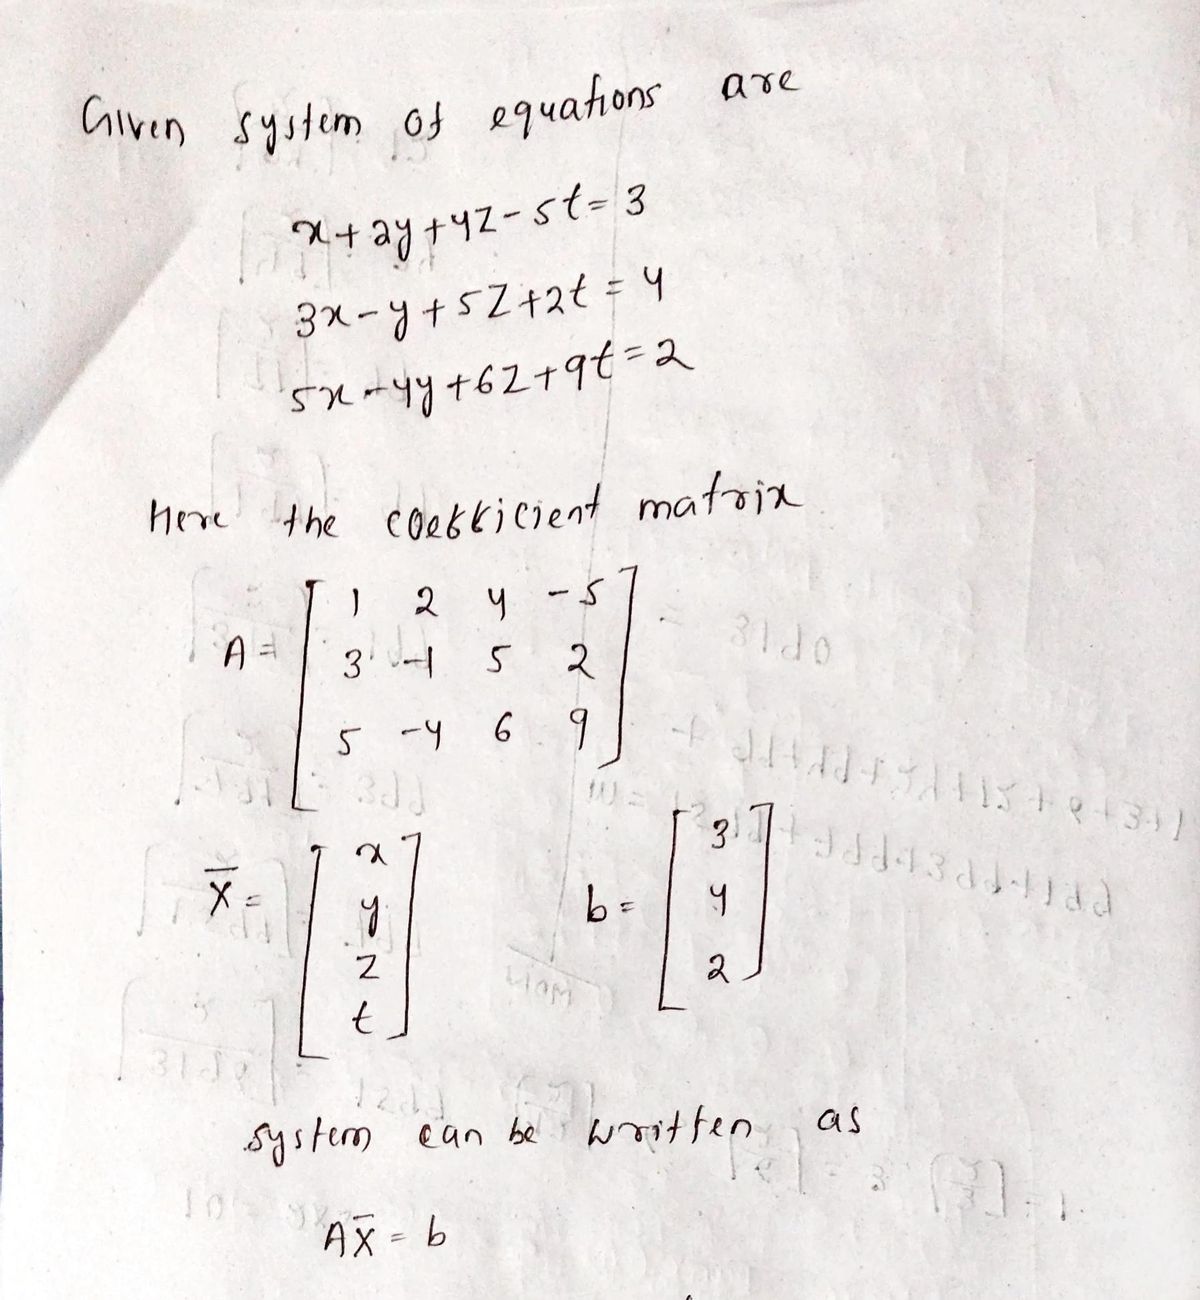 Given system of equations are
x+2y+4z-5t=3
3x-y+5z+2t=4
5x-4y+6z+9t=2
Here the coefficient matrix
A = [ 1 2 4 -5
3 -1 5 2
5 -4 6 9 ]
X̄ = [ x y z t ] b = [ 3 4 2 ]
system can be written as
AX̄ = b